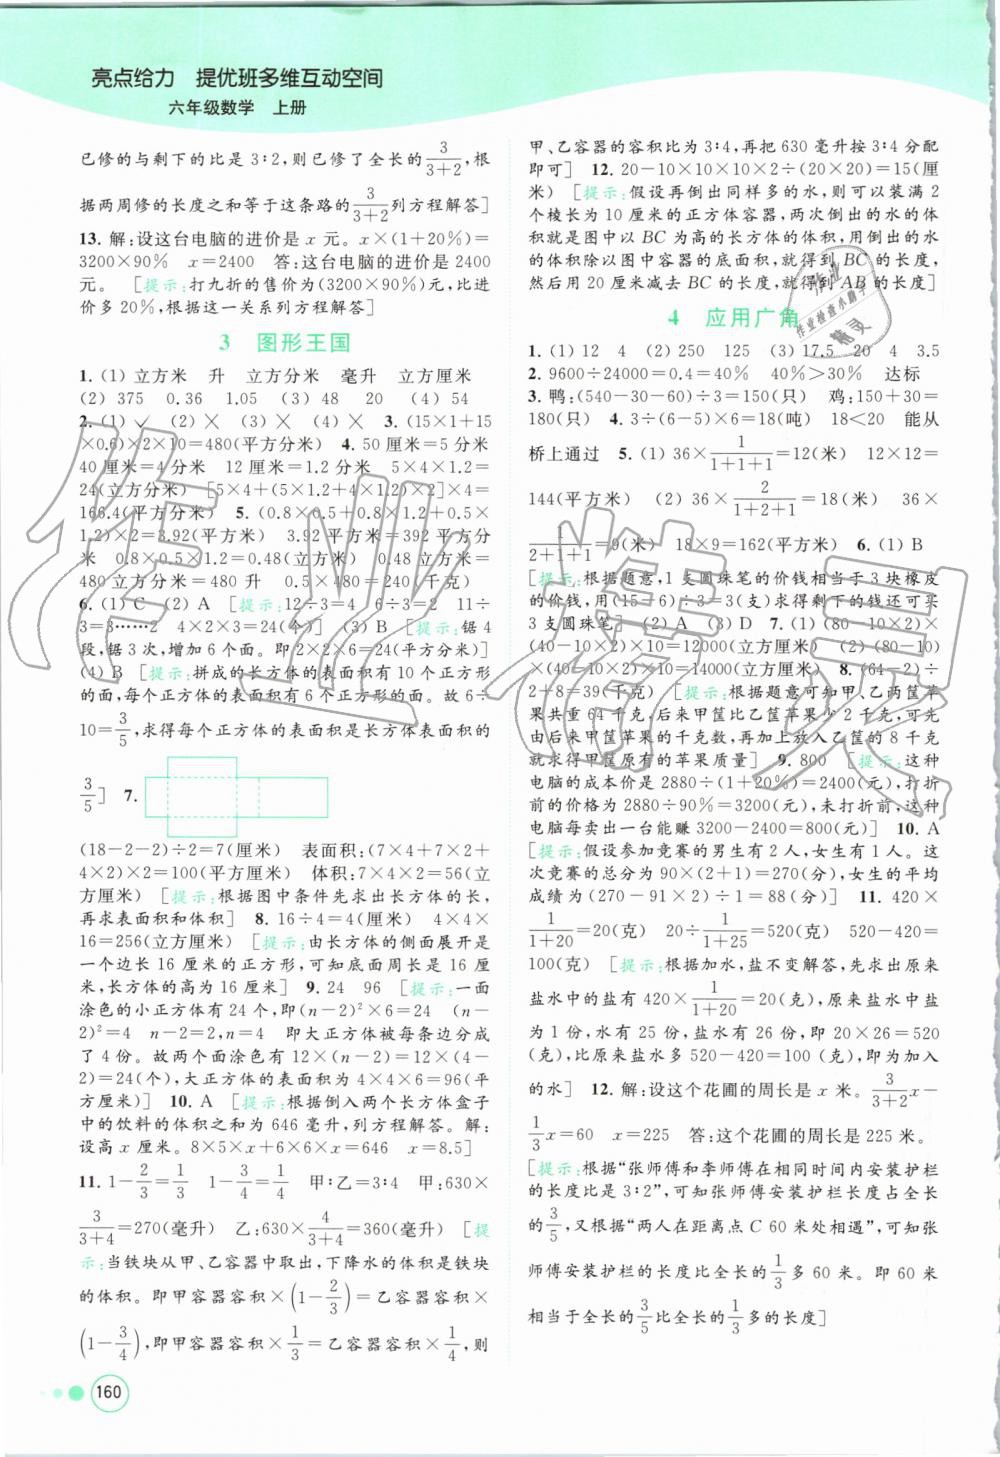 亮点给力 提优班多维互动空间
六年级数学 上册
已修的与剩下的比是 3∶2,则已修了全长的3/(3+2),根
据两周修的长度之和等于这条路的3/(3+2)列方程解答]
13. 解:设这台电脑的进价是 x 元。x×(1+20%)=
3200×90% x=2400 答:这台电脑的进价是 2400
元。 [提示:打九折的售价为(3200×90%)元,比进价
多 20%,根据这一关系列方程解答]
3 图形王国
1. (1) 立方米 升 立方分米 毫升 立方厘米
(2) 375 0.36 1.05 (3) 48 20 (4) 54
2. (1) ✓ (2) × (3) × (4) × 3. (15×1+15
×0.6)×2×10=480(平方分米) 4. 50 厘米=5 分米
40 厘米=4 分米 12 厘米=1.2 分米 5×4×1.2=
24(立方分米) [5×4+(5×1.2+4×1.2)×2]×4=
166.4(平方分米) 5. (0.8×0.5+0.8×1.2+0.5×
1.2)×2=3.92(平方米) 3.92 平方米=392 平方分
米 0.8×0.5×1.2=0.48(立方米) 0.48 立方米=
480 立方分米=480 升 0.5×480=240(千克)
6. (1) C (2) A [提示:12÷3=4 6÷3=2 11÷
3=3……2 4×2×3=24(个)] (3) B [提示:锯 4
段,锯 3 次,增加 6 个面。即 2×2×6=24(平方分米)]
(4) B [提示:拼成的长方体的表面积有 10 个正方形
的面,每个正方体的表面积有 6 个正方形的面。故 6÷
10=3/5,求得每个正方体的表面积是长方体表面积的
3/5] 7.
(18-2-2)÷2=7(厘米) 表面积:(7×4+7×2+
4×2)×2=100(平方厘米) 体积:7×4×2=56(立
方厘米) [提示:根据图中条件先求出长方体的长,
再求表面积和体积] 8. 16÷4=4(厘米) 4×4×
16=256(立方厘米) [提示:由长方体的侧面展开是
一个边长 16 厘米的正方形,可知底面周长是 16 厘
米,长方体的高为 16 厘米] 9. 24 96 [提示:一面
涂色的小正方体有 24 个,即(n-2)²×6=24 (n-
2)²=4 n-2=2, 即大正方体被每条边分成
了 4 份。故两个面涂色有 12×(n-2)=12×(4-
2)=24(个),大正方体的表面积为 4×4×6=96(平
方厘米)] 10. A [提示:根据倒入两个长方体盒子
中的饮料的体积之和为 646 毫升,列方程解答。解:
设高 x 厘米。8×5×x+6×6×x=646 x=8.5]
11. 1-2/3=1/3 1-3/4=1/4 甲∶乙=3∶4 甲:630×
3/(3+4)=270(毫升) 乙:630×4/(3+4)=360(毫升) [提
示:当铁块从甲、乙容器中取出,下降水的体积是铁块
的体积。即甲容器容积×(1-2/3)=乙容器容积×
(1-3/4),即甲容器容积×1/3=乙容器容积×1/4,则
160
甲、乙容器的容积比为 3∶4,再把 630 毫升按 3∶4 分配
即可] 12. 20-10×10×10×2÷(20×20)=15(厘
米) [提示:假设再倒出同样多的水,则可以装满 2
个棱长为 10 厘米的正方体容器,两次倒出的水的体
积就是图中以 BC 为高的长方体的体积,用倒出的水
的体积除以图中容器的底面积,就得到 BC 的长度,
然后用 20 厘米减去 BC 的长度,就得到 AB 的长度]
4 应用广角
1. (1) 12 4 (2) 250 125 (3) 17.5 20 4 3.5
2. 9600÷24000=0.4=40% 40%>30% 达标
3. 鸭:(540-30-60)÷3=150(只) 鸡:150+30=
180(只) 4. 3÷(6-5)×6=18(吨) 18<20 能从
桥上通过 5. (1) 36×1/(1+1+1)=12(米) 12×12=
144(平方米) (2) 36×2/(1+2+1)=18(米) 36×
/(2+1+1)=9(米) 18×9=162(平方米) 6. (1) B
[提示:根据题意,1 支圆珠笔的价钱相当于 3 块橡皮
的价钱,用(15-6)÷3=3(支)求得剩下的钱还可买
3 支圆珠笔] (2) A (3) D 7. (1) (80-10×2)×
(40-10×2)×10=12000(立方厘米) (2) (80-10)
×(40-10×2)×10=14000(立方厘米) 8. (64-2)÷
2+8=39(千克) [提示:根据题意可知甲、乙两筐苹
果共重 64 千克,后来甲筐比乙筐苹果少 2 千克,可先
由后来甲筐苹果的千克数,再加上放入乙筐的 8 千克
就求得甲筐原来的苹果质量] 9. 800 [提示:这种
电脑的成本价是 2880÷(1+20%)=2400(元),打折
前的价格为 2880÷90%=3200(元),未打折前,这种
电脑每卖出一台能赚 3200-2400=800(元)] 10. A
[提示:假设参加竞赛的男生有 2 人,女生有 1 人。这
次竞赛的总分为 90×(2+1)=270(分),女生的平均
成绩为(270-91×2)÷1=88(分)] 11. 420×
1/(1+20)=20(克) 20÷1/(1+25)=520(克) 520-420=
100(克) [提示:根据加水,盐不变解答,先求出原来
盐水中的盐有 420×1/(1+20)=20(克),原来盐水中盐
为 1 份,水有 25 份,盐水有 26 份,即 20×26=520
(克),比原来盐水多 520-420=100(克),即为加入
的水] 12. 解:设这个花圃的周长是 x 米。3/(3+2)x-
1/3x=60 x=225 答:这个花圃的周长是 225 米。
[提示:根据“张师傅和李师傅在相同时间内安装护栏
的长度比是 3∶2”,可知张师傅安装护栏长度占全长
的3/5,又根据“两人在距离点 C 60 米处相遇”,可知张
师傅安装护栏的长度比全长的1/3多 60 米。即 60 米
相当于全长的3/5比全长的1/3多的长度]
作业精灵
作业检查小助手
精灵